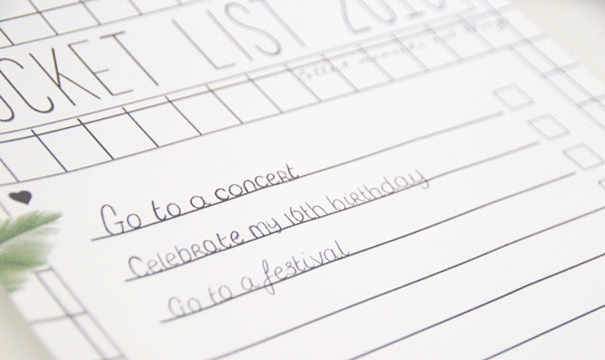 UCKET LIST 201
Go to a concert
Celebrate my 16th birthday
Go to a festival